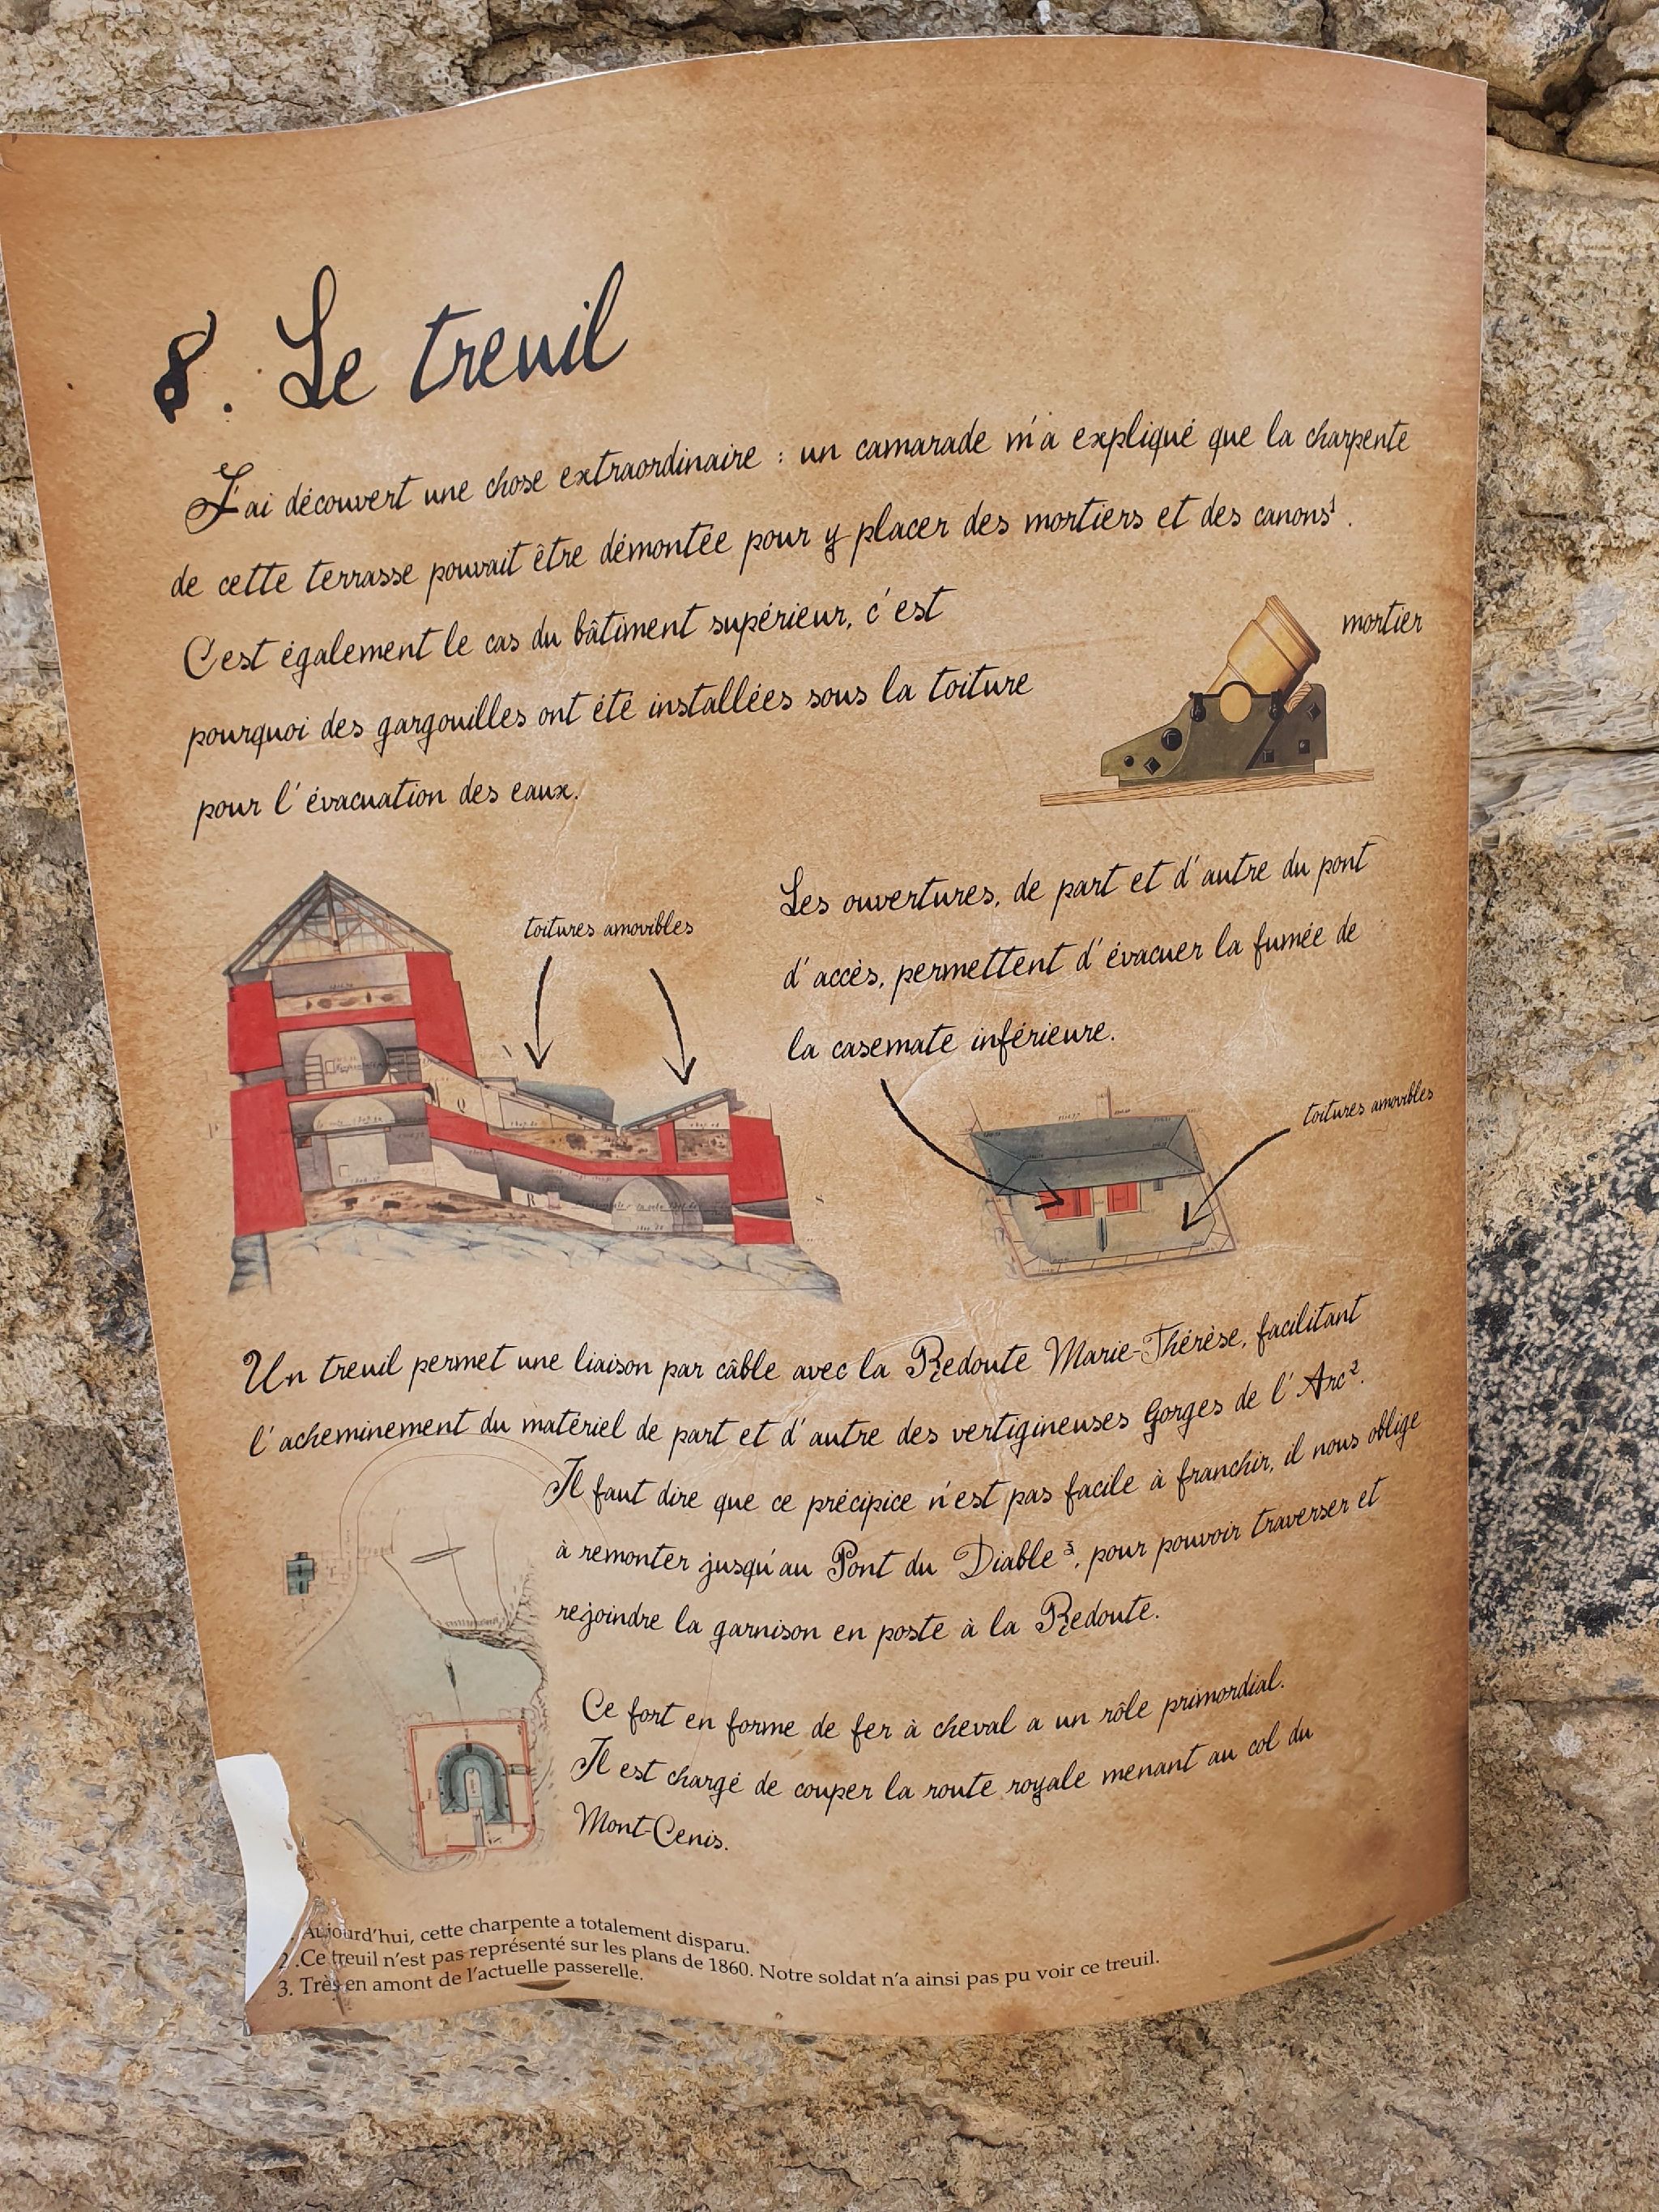 8. Le treuil
J'ai découvert une chose extraordinaire : un camarade m'a expliqué que la charpente
de cette terrasse pouvait être démontée pour y placer des mortiers et des canons¹.
C'est également le cas du bâtiment supérieur, c'est
pourquoi des gargouilles ont été installées sous la toiture
pour l'évacuation des eaux.
mortier
toitures amovibles
Les ouvertures, de part et d'autre du pont
d'accès, permettent d'évacuer la fumée de
la casemate inférieure.
toitures amovibles
Q
R
Un treuil permet une liaison par câble avec la Redoute Marie-Thérèse, facilitant
l'acheminement du matériel de part et d'autre des vertigineuses Gorges de l'Arc².
Il faut dire que ce précipice n'est pas facile à franchir, il nous oblige
à remonter jusqu'au Pont du Diable³, pour pouvoir traverser et
rejoindre la garnison en poste à la Redoute.
Ce fort en forme de fer à cheval a un rôle primordial.
Il est chargé de couper la route royale menant au col du
Mont-Cenis.
. Aujourd'hui, cette charpente a totalement disparu.
2 .Ce treuil n'est pas représenté sur les plans de 1860. Notre soldat n'a ainsi pas pu voir ce treuil.
3. Très en amont de l'actuelle passerelle.